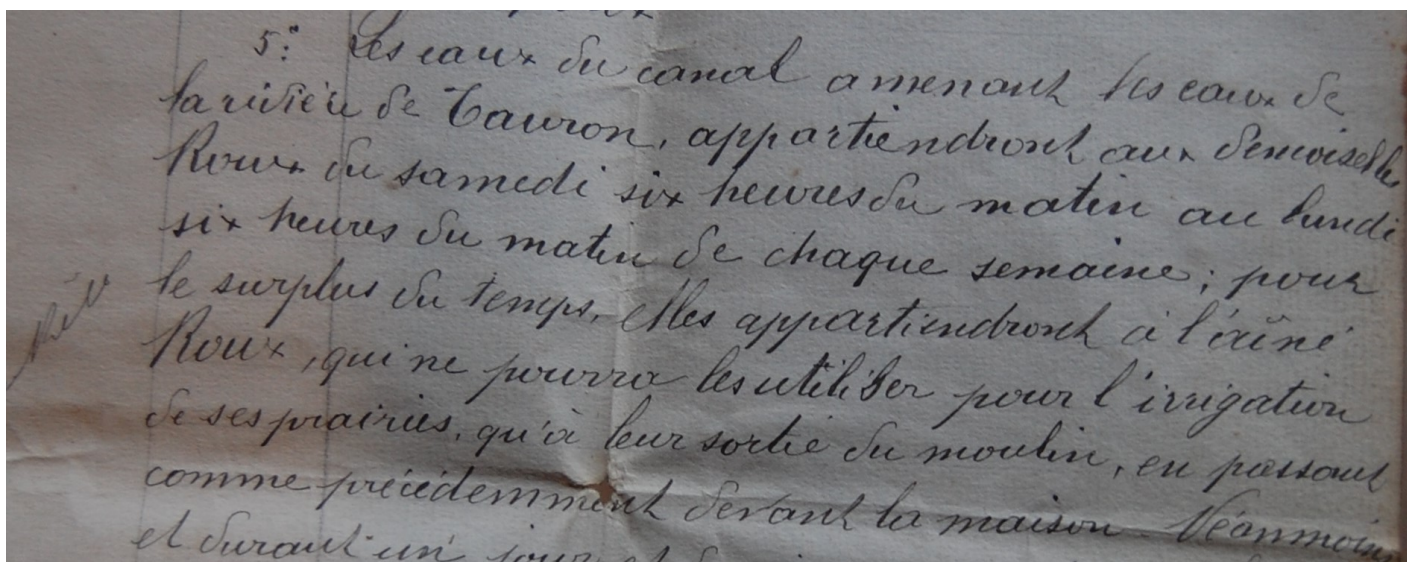 5° Les eaux du canal amenant les eaux de
la rivière de Tauron, appartiendront aux demoiselles
Roux du samedi six heures du matin au lundi
six heures du matin de chaque semaine; pour
le surplus du temps, elles appartiendront à l'aîné
Roux, qui ne pourra les utiliser pour l'irrigation
de ses prairies, qu'à leur sortie du moulin, en passant
comme précédemment devant la maison. Néanmoins
et durant un jour et